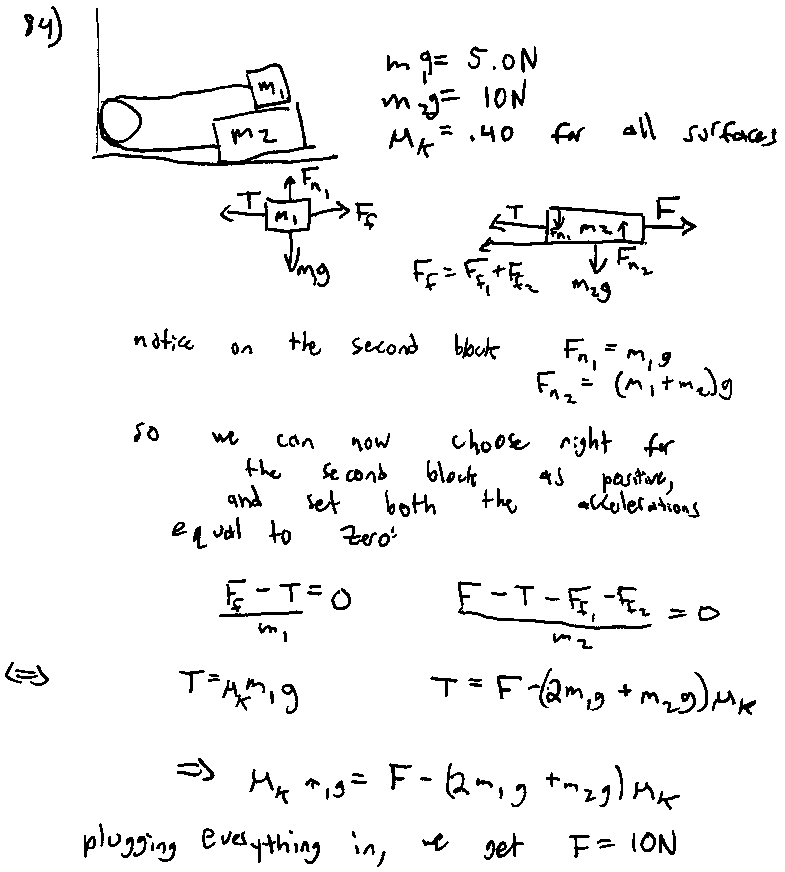 84)
m₁g = 5.0N
m₂g = 10N
μₖ = .40 for all surfaces
m₁
m2
T Fₙ₁ m₁ F_f
m₁g
T Fₙ₁ m2 F
F_f = F_f₁ + F_f₂ m₂g Fₙ₂
notice on the second block Fₙ₁ = m₁g
Fₙ₂ = (m₁ + m₂)g
so we can now choose right for
the second block as positive,
and set both the accelerations
equal to zero:
(F_f - T)/m₁ = 0 (F - T - F_f₁ - F_f₂)/m₂ = 0
⟺ T = μₖm₁g T = F - (2m₁g + m₂g)μₖ
⇒ μₖ m₁g = F - (2m₁g + m₂g)μₖ
plugging everything in, we get F = 10N